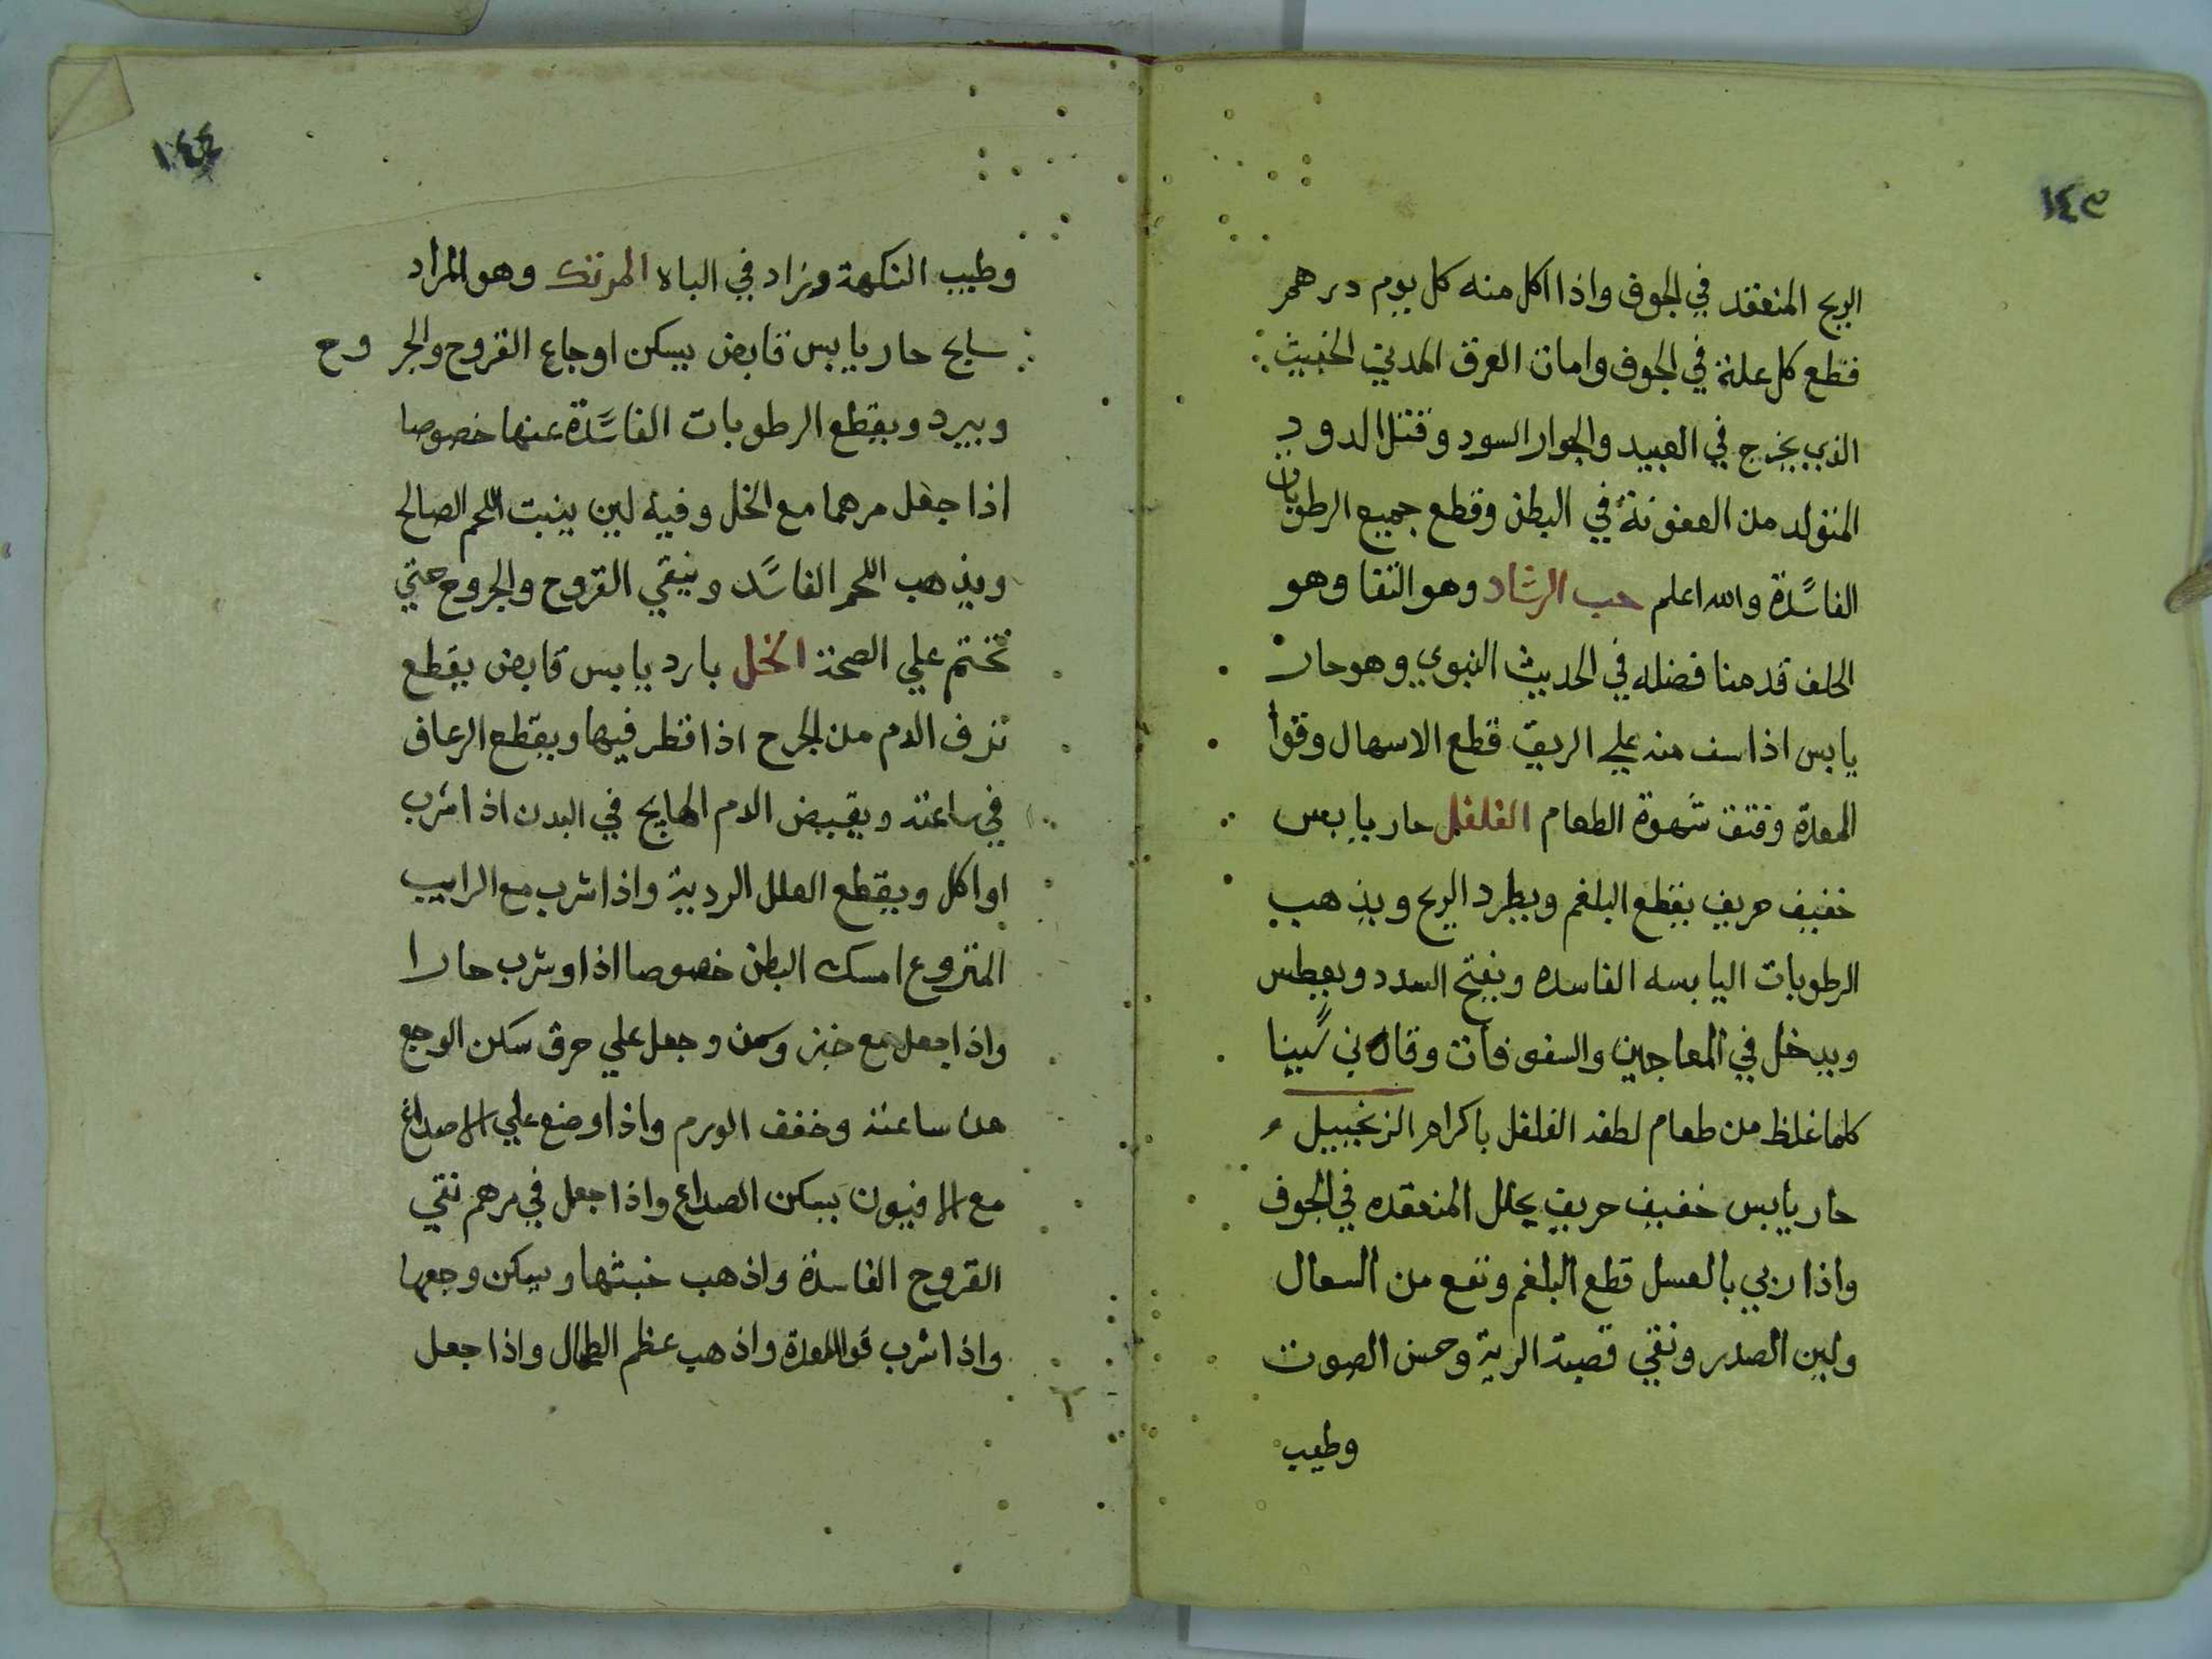 ١٤٣
الريح المنعقد في الجوف واذا اكل منه كل يوم درهم
قطع كل علة في الجوف وامات العرق المديني الخبيث
الذي يخرج في العبيد والجوار السود وقتل الدود
المتولد من العفونة في البطن وقطع جميع الرطوبات
الفاسدة والله اعلم حب الرشاد وهو الثفا وهو
الحلف قدمنا فضله في الحديث النبوي وهو حار
يابس اذا سف منه علي الريق قطع الاسهال وقوا
المعدة وفتق شهوة الطعام الفلفل حار يابس
خفيف حريف يقطع البلغم ويطرد الريح ويذهب
الرطوبات اليابسه الفاسده ويفتح السدد ويعطس
ويدخل في المعاجين والسفوفات وقال بن سينا
كلما غلظ من طعام لطفه الفلفل باكرام الزنجبيل
حار يابس خفيف حريف يحلل المنعقده في الجوف
واذا ربي بالعسل قطع البلغم ونفع من السعال
ولين الصدر ونقي قصبة الرية وحسن الصوت
وطيب
١٤٤
وطيب النكهة وزاد في الباه المرتك وهو المراد
سابح حار يابس قابض يسكن اوجاع القروح والجروح
ويبرد ويقطع الرطوبات الفاسدة عنها خصوصا
اذا جعل مرهما مع الخل وفيه لين ينبت اللحم الصالح
ويذهب اللحم الفاسد وينقي القروح والجروح حتي
تختم علي الصحة الخل بارد يابس قابض يقطع
نزف الدم من الجرح اذا قطر فيها ويقطع الرعاف
في ساعته ويقبض الدم الهايج في البدن اذا شرب
او اكل ويقطع العلل الردية واذا شرب مع الرايب
المنزوع امسك البطن خصوصا اذا وشرب حارا
واذا جعل مع خبز وسمن وجعل علي حرق سكن الوجع
من ساعته وخفف الورم واذا وضع علي الاصداغ
مع الافيون يسكن الصداع واذا جعل في مرهم نقي
القروح الفاسدة واذهب خبثها ويسكن وجعها
واذا شرب قوا المعدة واذهب عظم الطحال واذا جعل